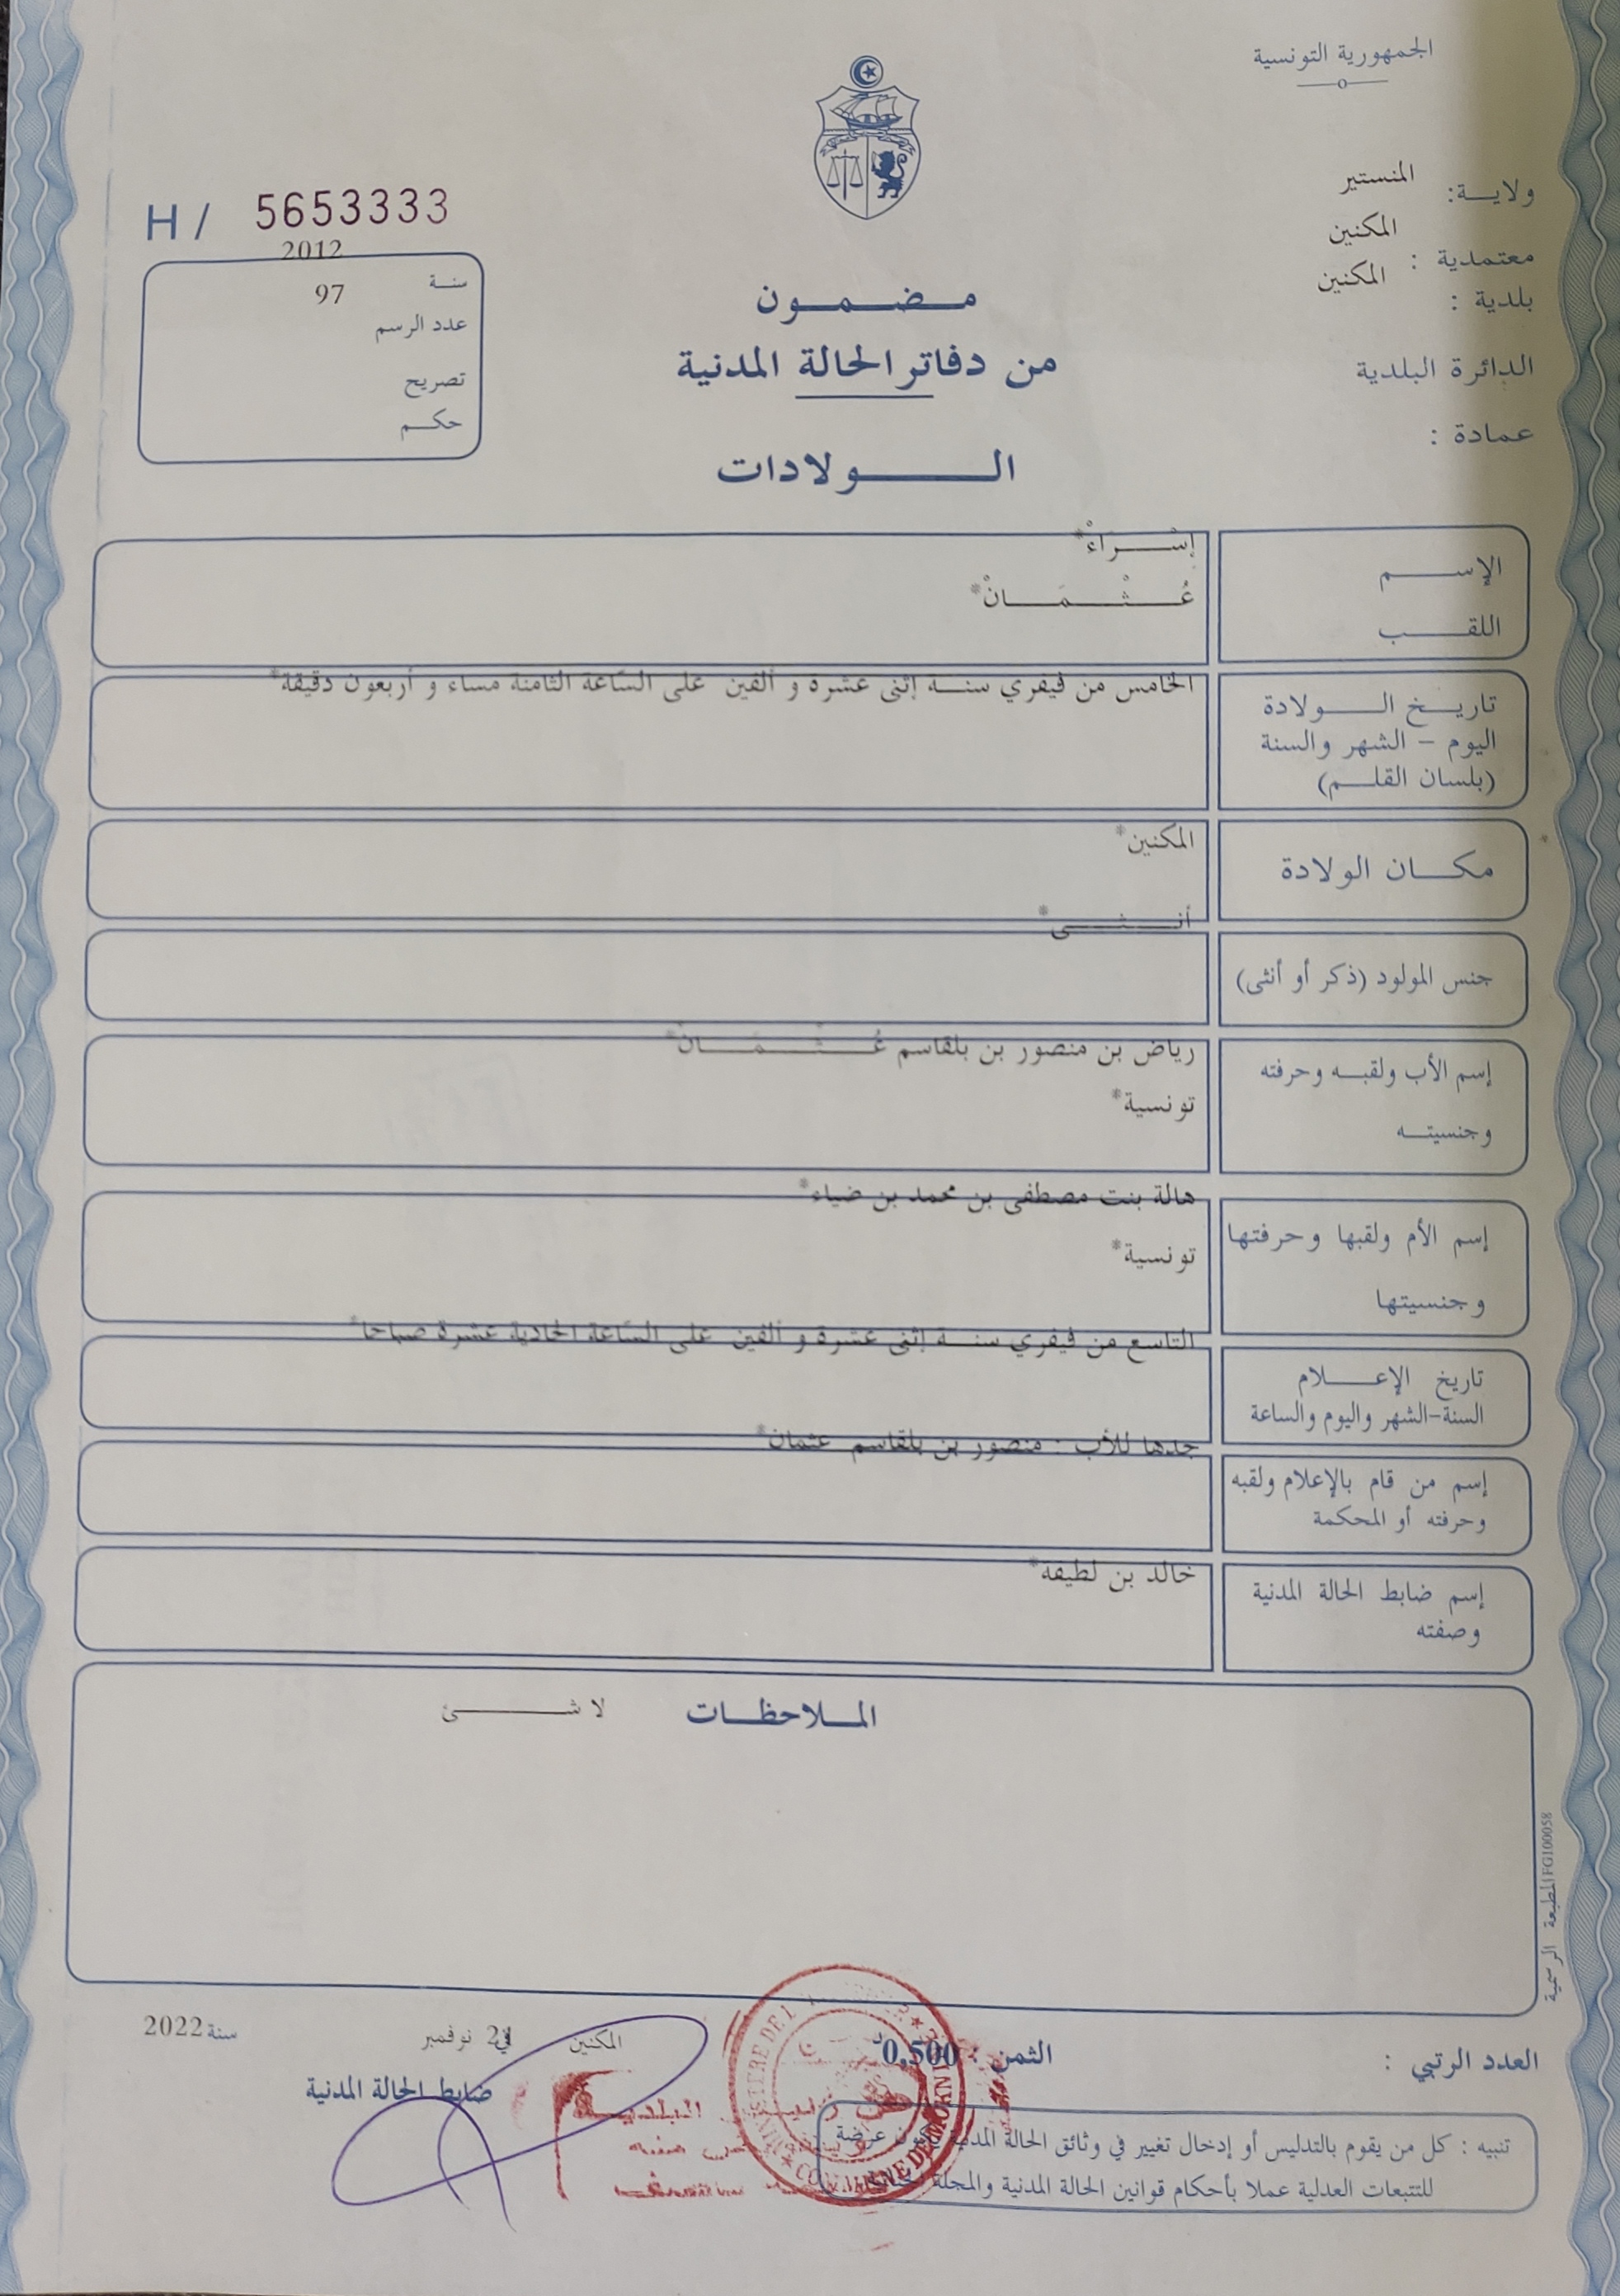 الجمهورية التونسية
ولايـة: المنستير
معتمدية : المكنين
بلدية : المكنين
الدائرة البلدية
عمادة :
H / 5653333
2012
سنة
97
عدد الرسم
تصريح
حكم
مضمون
من دفاتر الحالة المدنية
الولادات
الإسم
إسْرَاءْ*
اللقب
عُثْمَانْ*
تاريخ الولادة
اليوم - الشهر والسنة
(بلسان القلم)
الخامس من فيفري سنة إثنى عشرة و ألفين على الساعة الثامنة مساء و أربعون دقيقة*
مكان الولادة
المكنين*
جنس المولود (ذكر أو أنثى)
أنثى*
إسم الأب ولقبه وحرفته
وجنسيته
رياض بن منصور بن بلقاسم عُثْمَانْ*
تونسية*
إسم الأم ولقبها وحرفتها
وجنسيتها
هالة بنت مصطفى بن محمد بن ضياء*
تونسية*
تاريخ الإعلام
السنة-الشهر واليوم والساعة
التاسع من فيفري سنة إثنى عشرة و ألفين على الساعة الحادية عشرة صباحا*
إسم من قام بالإعلام ولقبه
وحرفته أو المحكمة
جدها للأب : منصور بن بلقاسم عثمان*
إسم ضابط الحالة المدنية
وصفته
خالد بن لطيفة*
الملاحظات لا شئ
المطبعة الرسمية FG100058
العدد الرتبي :
الثمن : 0,500د
المكنين في 2 نوفمبر سنة 2022
ضابط الحالة المدنية
البلدية
COMMUNE DE MOKNI
تنبيه : كل من يقوم بالتدليس أو إدخال تغيير في وثائق الحالة المدنية يكون عرضة
للتتبعات العدلية عملا بأحكام قوانين الحالة المدنية والمجلة الجنائية